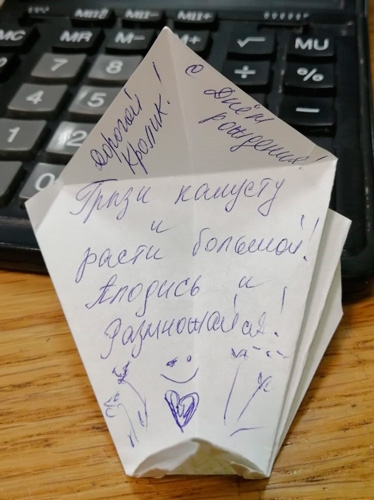 Дорогой
Кролик!
С Днём
рождения!
Грызи капусту
и
расти большой!
Плодись и
Размножайся!
MU2
MU+
MU
MC
MR
M-
M+
√
7
8
÷
%
4
5
1
2
0